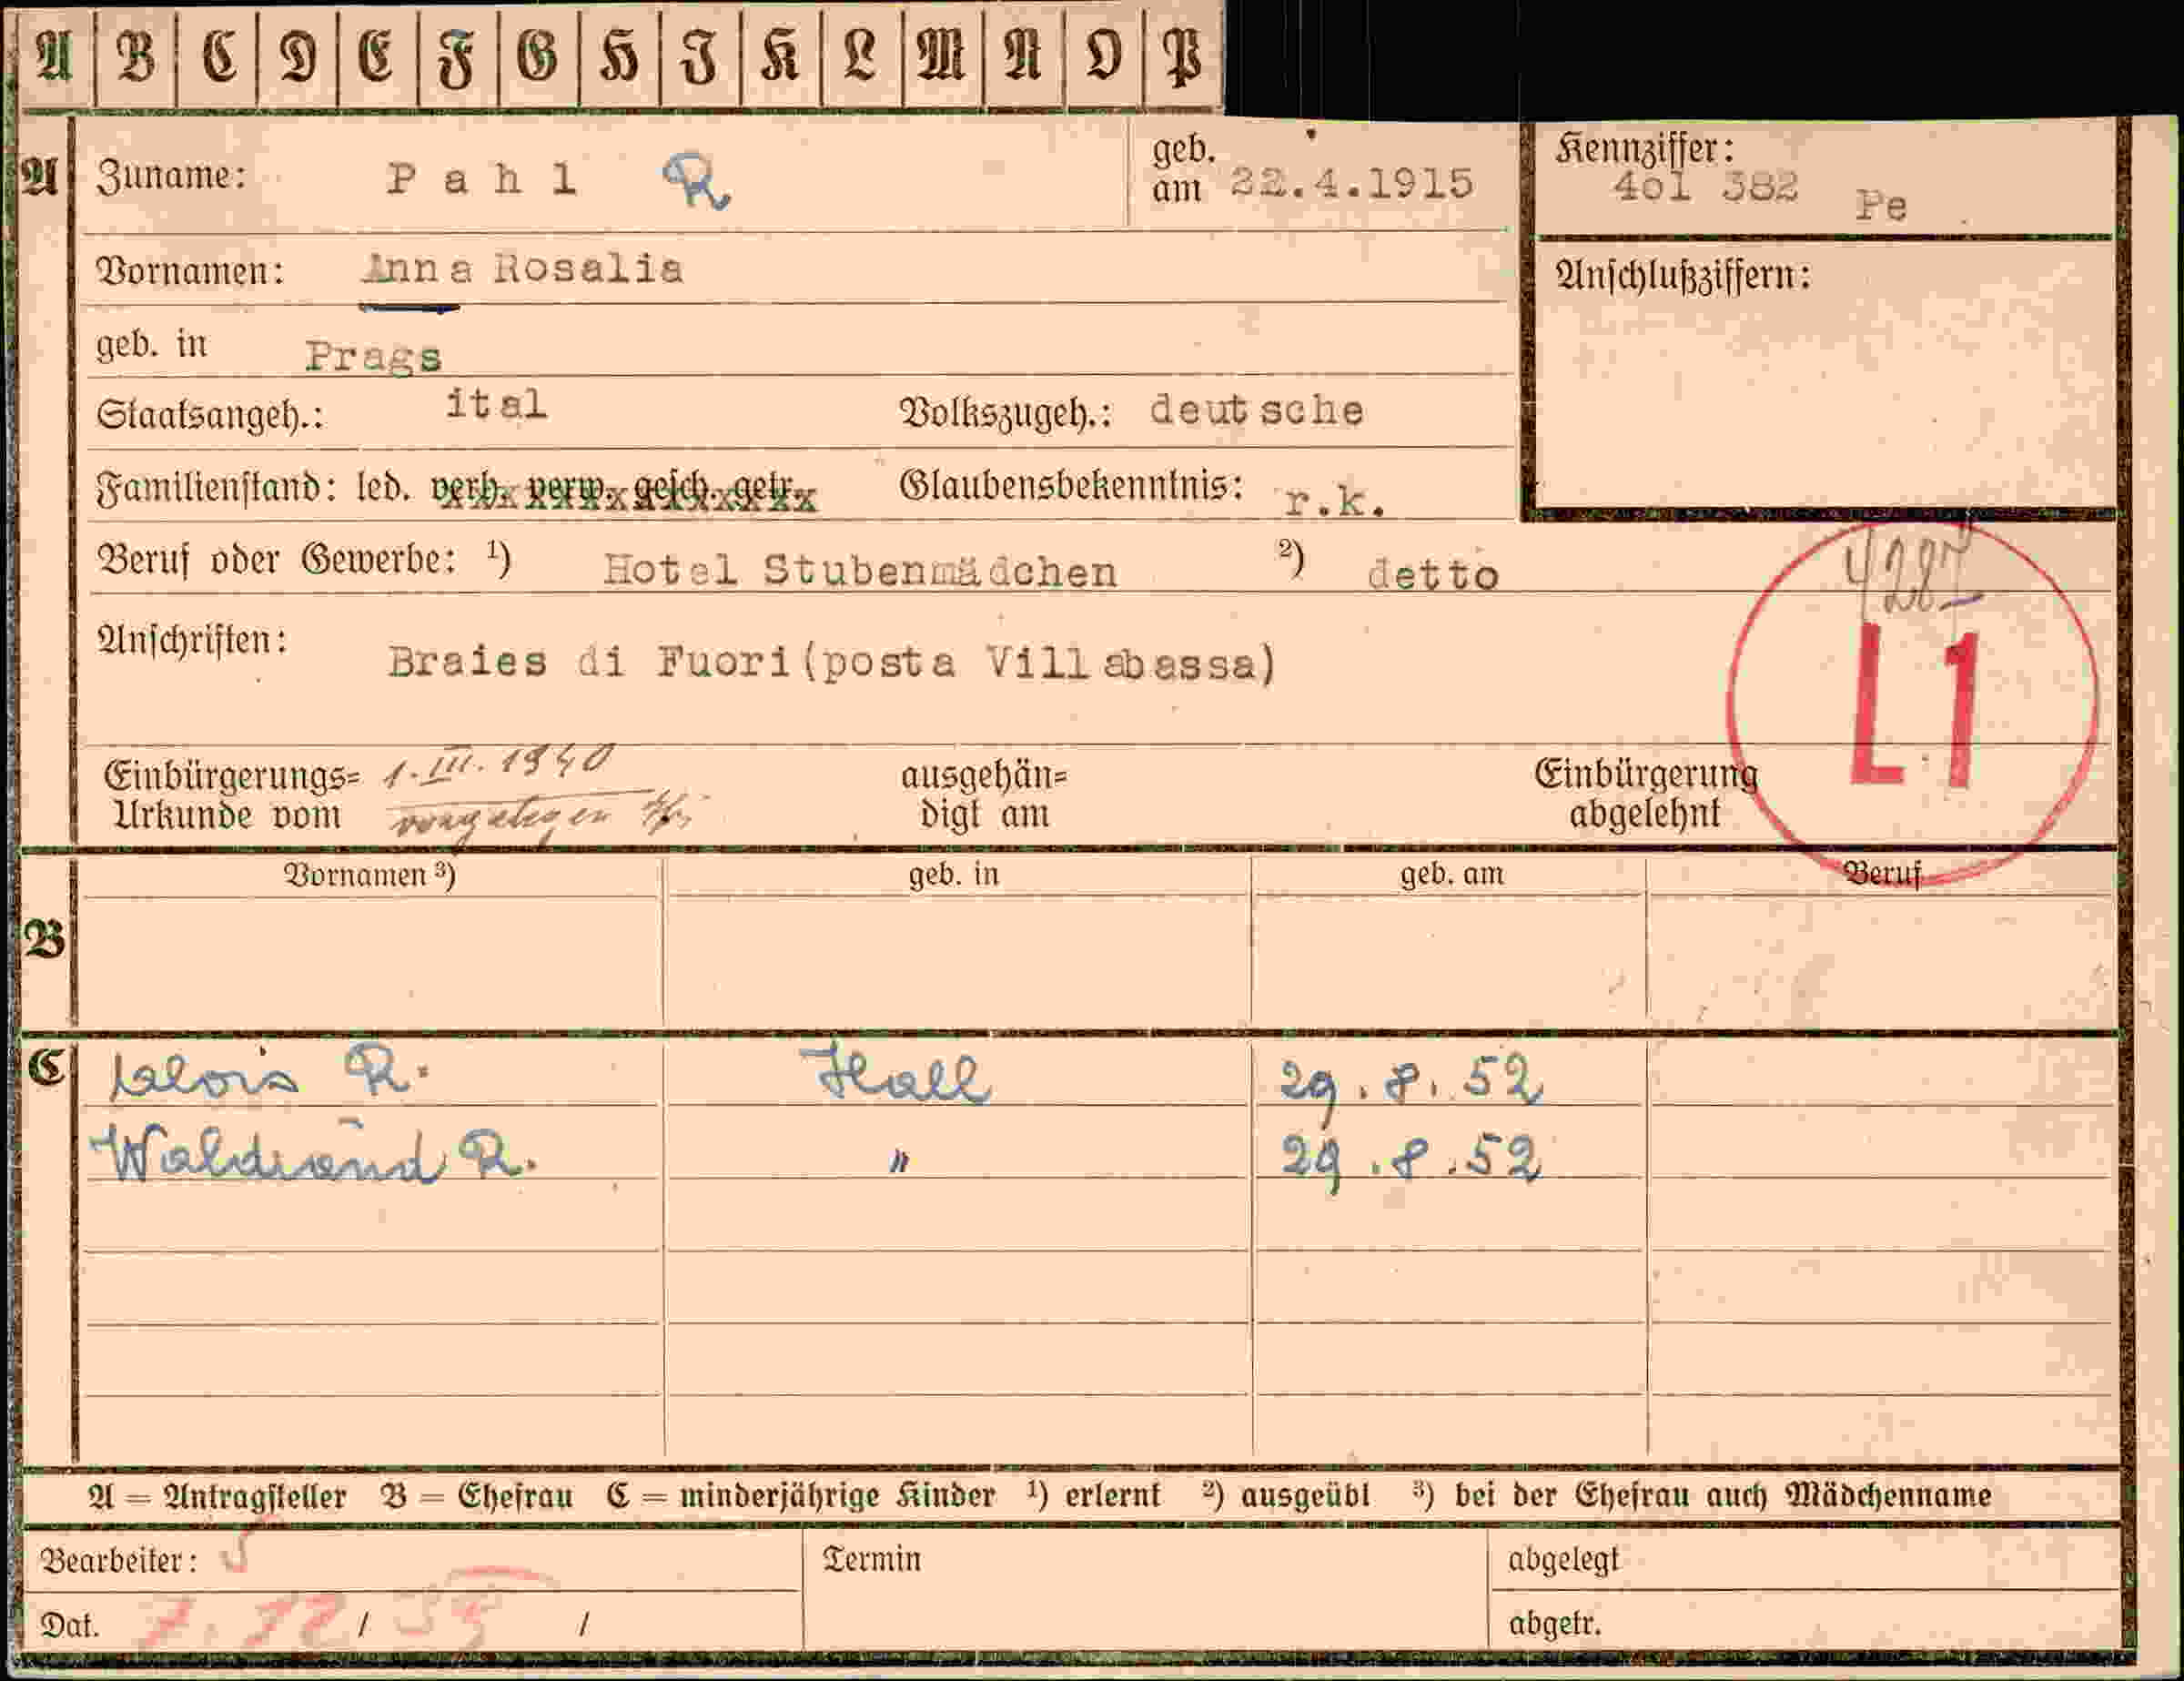 A B C D E F G H I K L M N O P
A Zuname: Pahl R geb. am 22.4.1915 Kennziffer: 4o1 382 Pe
Vornamen: Anna Rosalia Anschlußziffern:
geb. in Prags
Staatsangeh.: ital Volkszugeh.: deutsche
Familienstand: led. verh. verw. gesch. getr. Glaubensbekenntnis: r.k.
Beruf oder Gewerbe: ¹) Hotel Stubenmädchen ²) detto
4287
Anschriften: Braies di Fuori(posta Villabassa)
L1
Einbürgerungs= 1.III.1940 ausgehän= Einbürgerung
Urkunde vom digt am abgelehnt
Vornamen ³) geb. in geb. am Beruf
B
C Alois R. Hall 29.8.52
Waldrand R. " 29.8.52
A = Antragsteller B = Ehefrau C = minderjährige Kinder ¹) erlernt ²) ausgeübt ³) bei der Ehefrau auch Mädchenname
Bearbeiter: Termin abgelegt
Dat. / / abgetr.